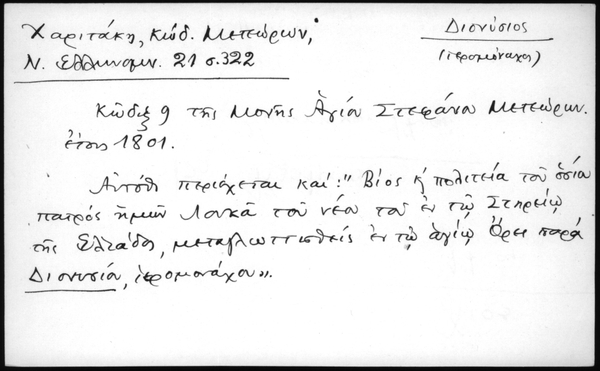 Χαριτάκη, Κώδ. Μετεώρων,
Διονύσιος
Ν. Ελληνομν. 21 σ.322
(ιερομόναχος)
Κῶδιξ 9 τῆς Μονῆς Ἁγίου Στεφάνου Μετεώρων.
ἔτους 1801.
Αὐτόθι περιέχεται καί: "Βίος κ' πολιτεία τοῦ ὁσίου
πατρός ἡμῶν Λουκᾶ τοῦ νέου τοῦ ἐν τῷ Στηρείῳ
τῆς Ἑλλάδος, μεταγλωττισθείς ἐν τῷ ἁγίῳ Ὄρει παρά
Διονυσίου, ἱερομονάχου».